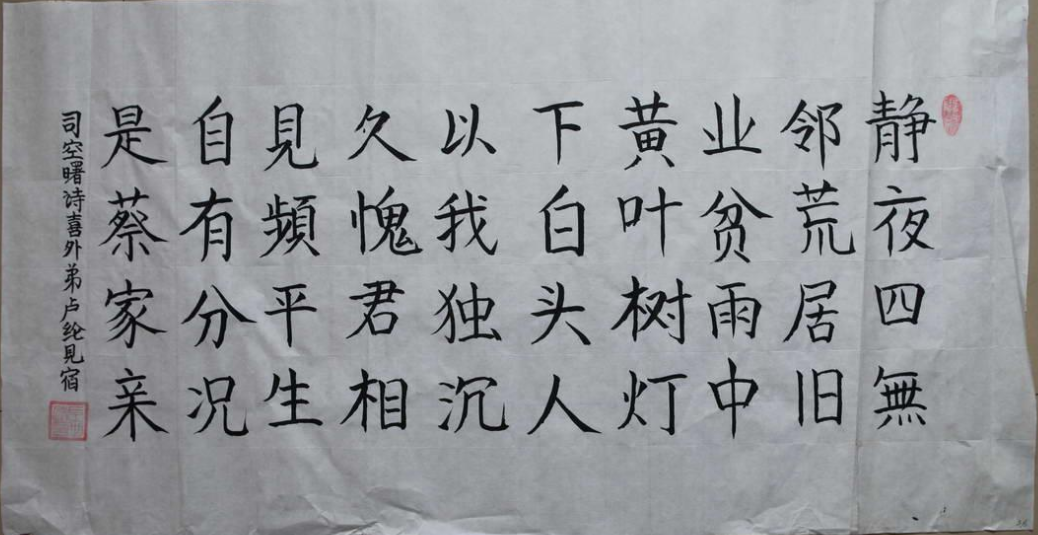 静夜四無
邻荒居旧
业贫雨中
黄叶树灯
下白头人
以我独沉
久愧君相
見頻平生
自有分况
是蔡家亲
司空曙诗喜外弟卢纶見宿